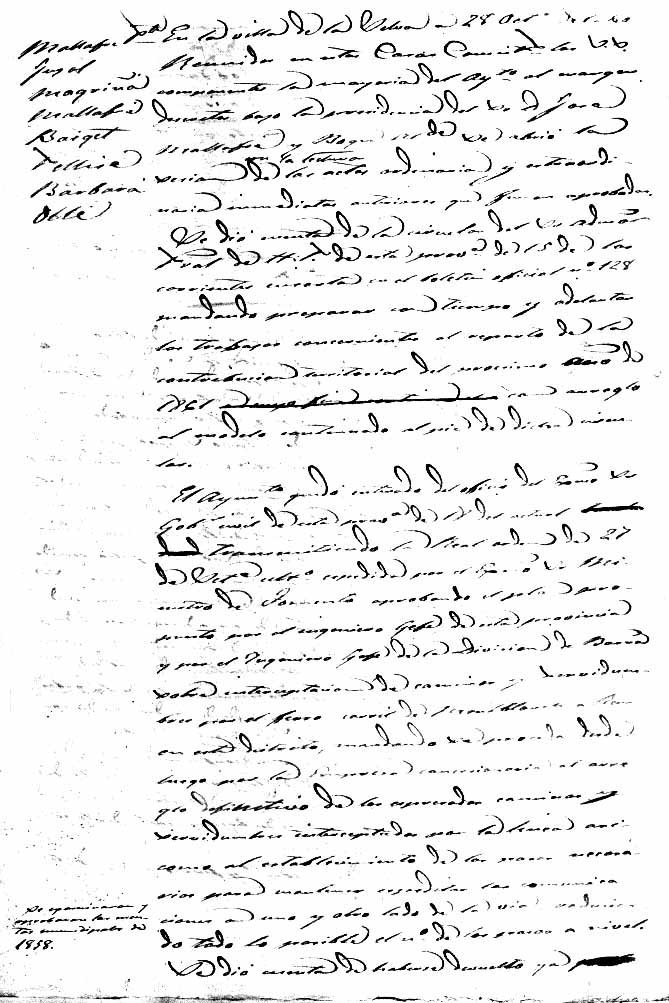 Mallafré Pte
Josel
Magriñá
Mallafré
Baiget
Pellisé
Barbará
Ollé
En la villa de la Selva a 28 Oct.e de 1860
Reunidos en estas Casas Consist.s los SS.
componentes la mayoria del Ayto. al margen
descrito bajo la presidencia del Sr. D. José
Mallafré y Alcalde se abrió la
sesion con la lectura de las actas ordinaria y estraordi-
naria inmediatas anteriores que fueron aprobadas.
Se dió cuenta de la circular del Sr. Admor.
Pral. de Hda. de esta prov.a de 15 de los
corrientes inserta en el boletin oficial nº 128
mandando preparar con tiempo y adelantar
los trabajos concernientes al reparto de la
contribucion territorial del procsimo año de
1861 con arreglo
al modelo continuado al pié de dicha circu-
lar.
El Ayunto. quedó enterado del oficio del Escmo. Sr.
Gobr. civil de esta prov.a de del actual
transmitiendo la Real orden de 27
de Set.e ult.o expedida por el Escmo. Sr. Mi-
nistro de Fomento aprobando el plan pro-
puesto por el ingeniero Gefe de esta provincia
y por el Ingeniero Gefe de la Division de Barna.
sobre interceptacion de caminos y servidum-
bres por el ferro carril de Montblanch a Reus
en este distrito, mandando se proceda desde
luego por la Empresa concesionaria al arre-
glo definitivo de los espresados caminos y
servidumbres interceptadas por la linea asi
como al establecimiento de los pasos necesa-
rios para mantener espeditas las comunica
ciones a uno y otro lado de la via reducien-
do todo lo posible el nº de los pasos a nivel.
Se dió cuenta de haberse devuelto ya
Se ecsaminaron y
aprobaron las cuen-
tas municipales de
1858.